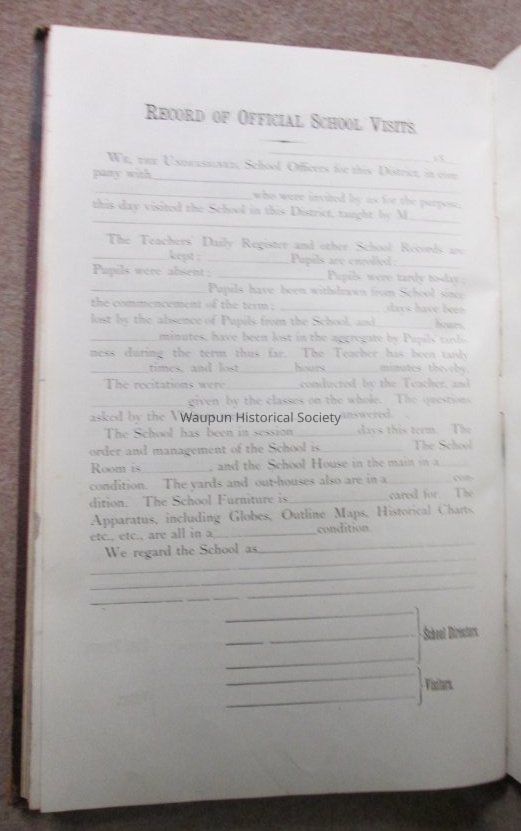 RECORD OF OFFICIAL SCHOOL VISITS.
18
WE, THE UNDERSIGNED, School Officers for this District, in com-
pany with
who were invited by us for the purpose,
this day visited the School in this District, taught by M
The Teachers' Daily Register and other School Records are
kept; Pupils are enrolled;
Pupils were absent; Pupils were tardy to-day;
Pupils have been withdrawn from School since
the commencement of the term; days have been
lost by the absence of Pupils from the School, and hours,
minutes, have been lost in the aggregate by Pupils' tardi-
ness during the term thus far. The Teacher has been tardy
times, and lost hours minutes thereby.
The recitations were conducted by the Teacher, and
given by the classes on the whole. The questions
asked by the answered.
Waupun Historical Society
The School has been in session days this term. The
order and management of the School is The School
Room is , and the School House in the main in a
condition. The yards and out-houses also are in a con-
dition. The School Furniture is cared for. The
Apparatus, including Globes, Outline Maps, Historical Charts,
etc., etc., are all in a condition.
We regard the School as
School Directors.
Visitors.